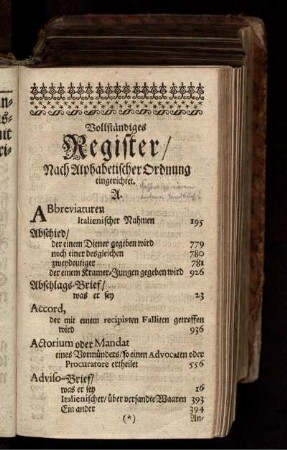 an-
s-
nit
ri-
Vollständiges
Register/
Nach Alphabetischer Ordnung
eingerichtet.
A.
ABbreviaturen
Italienischer Nahmen 195
Abschied/
der einem Diener gegeben wird 779
noch einer desgleichen 780
zweydeutiger 781
der einem Kramer-Jungen gegeben wird 926
Abschlags-Brief/
was er sey 23
Accord,
der mit einem recipirten Falliten getroffen
wird 936
Actorium oder Mandat
eines Vormünders/ so einen Advocaten oder
Procuratore ertheilet 556
Adviso-Brief/
was er sey 16
Italienischer/ über versandte Waaren 393
Ein ander 394
(*) An-